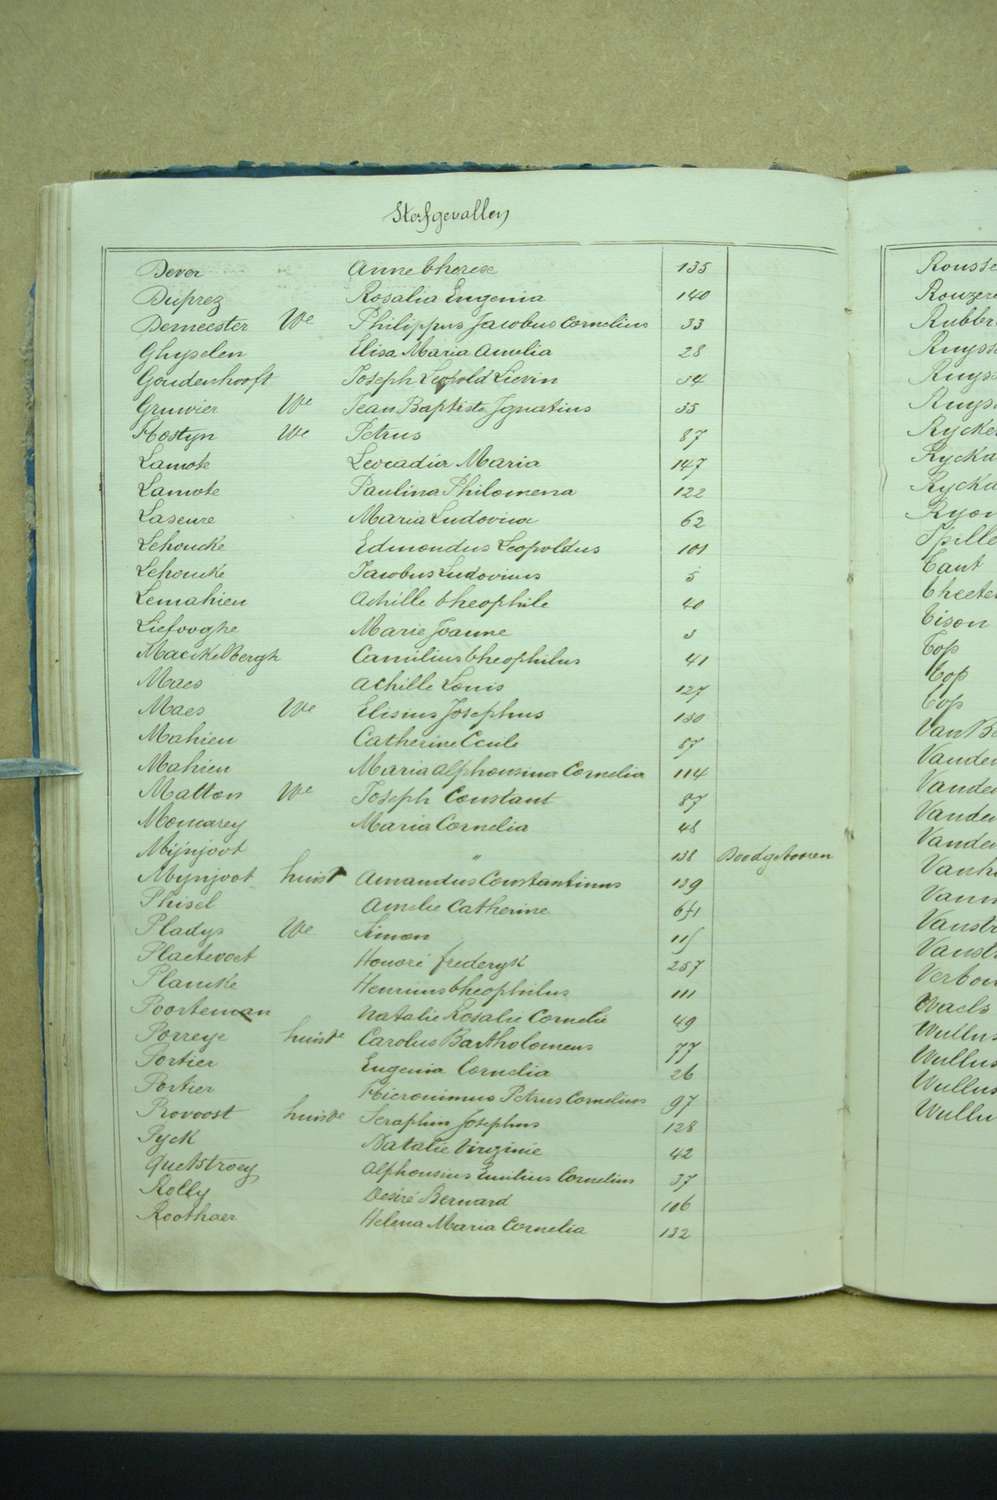 Sterfgevallen
Dever Anne Therese 135
Duprez Rosalia Eugenia 140
Demeester We Philippus Jacobus Cornelius 33
Ghyselen Elisa Maria Amelia 28
Goudenhooft Joseph Leopold Lievin 34
Gruwier We Jean Baptiste Ignatius 35
Hostyn We Petrus 87
Lamote Leocadia Maria 147
Lamote Paulina Philomena 122
Laseure Maria Ludovica 62
Lehoucké Edmondus Leopoldus 101
Lehoucké Jacobus Ludovicus 5
Lemahieu Achille Theophile 40
Liefooghe Marie Jeanne 3
Maeckelbergh Camilius Theophilus 41
Maes Achille Louis 127
Maes We Elisius Josephus 130
Mahieu Catherine Cecile 87
Mahieu Maria Alphonsina Cornelia 114
Matton We Joseph Constant 87
Momarey Maria Cornelia 48
Mijnjoot " 138 Doodgeboren
Mynjoot huist Amandus Constantinus 139
Phisel Amelie Catherine
Pladys We Simon
Plaetevoet Honoré frederyk 257
Plancke Henricus Theophilus 111
Poorteman Natalie Rosalie Cornelie 49
Porreye huiste Carolus Bartholomeus 77
Portier Eugenia Cornelia 26
Portier Hieronimus Petrus Cornelius 97
Provoost huiste Seraphin Josephus 128
Pyck Natalie Virginie 42
Quetstroey Alphonsius Emilius Cornelius 37
Rolly Desiré Bernard 106
Roothaer Helena Maria Cornelia 132
Rousse
Rouzere
Rubbr
Ruysse
Ruyss
Ruyss
Rycke
Rycka
Rycka
Ryon
Spille
Tant
Theete
Tison
Top
Top
Top
Van Be
Vande
Vande
Vande
Vande
Vanh
Vann
Vanstr
Vanst
Verbou
Waels
Wullus
Wullus
Wullus
Wullu